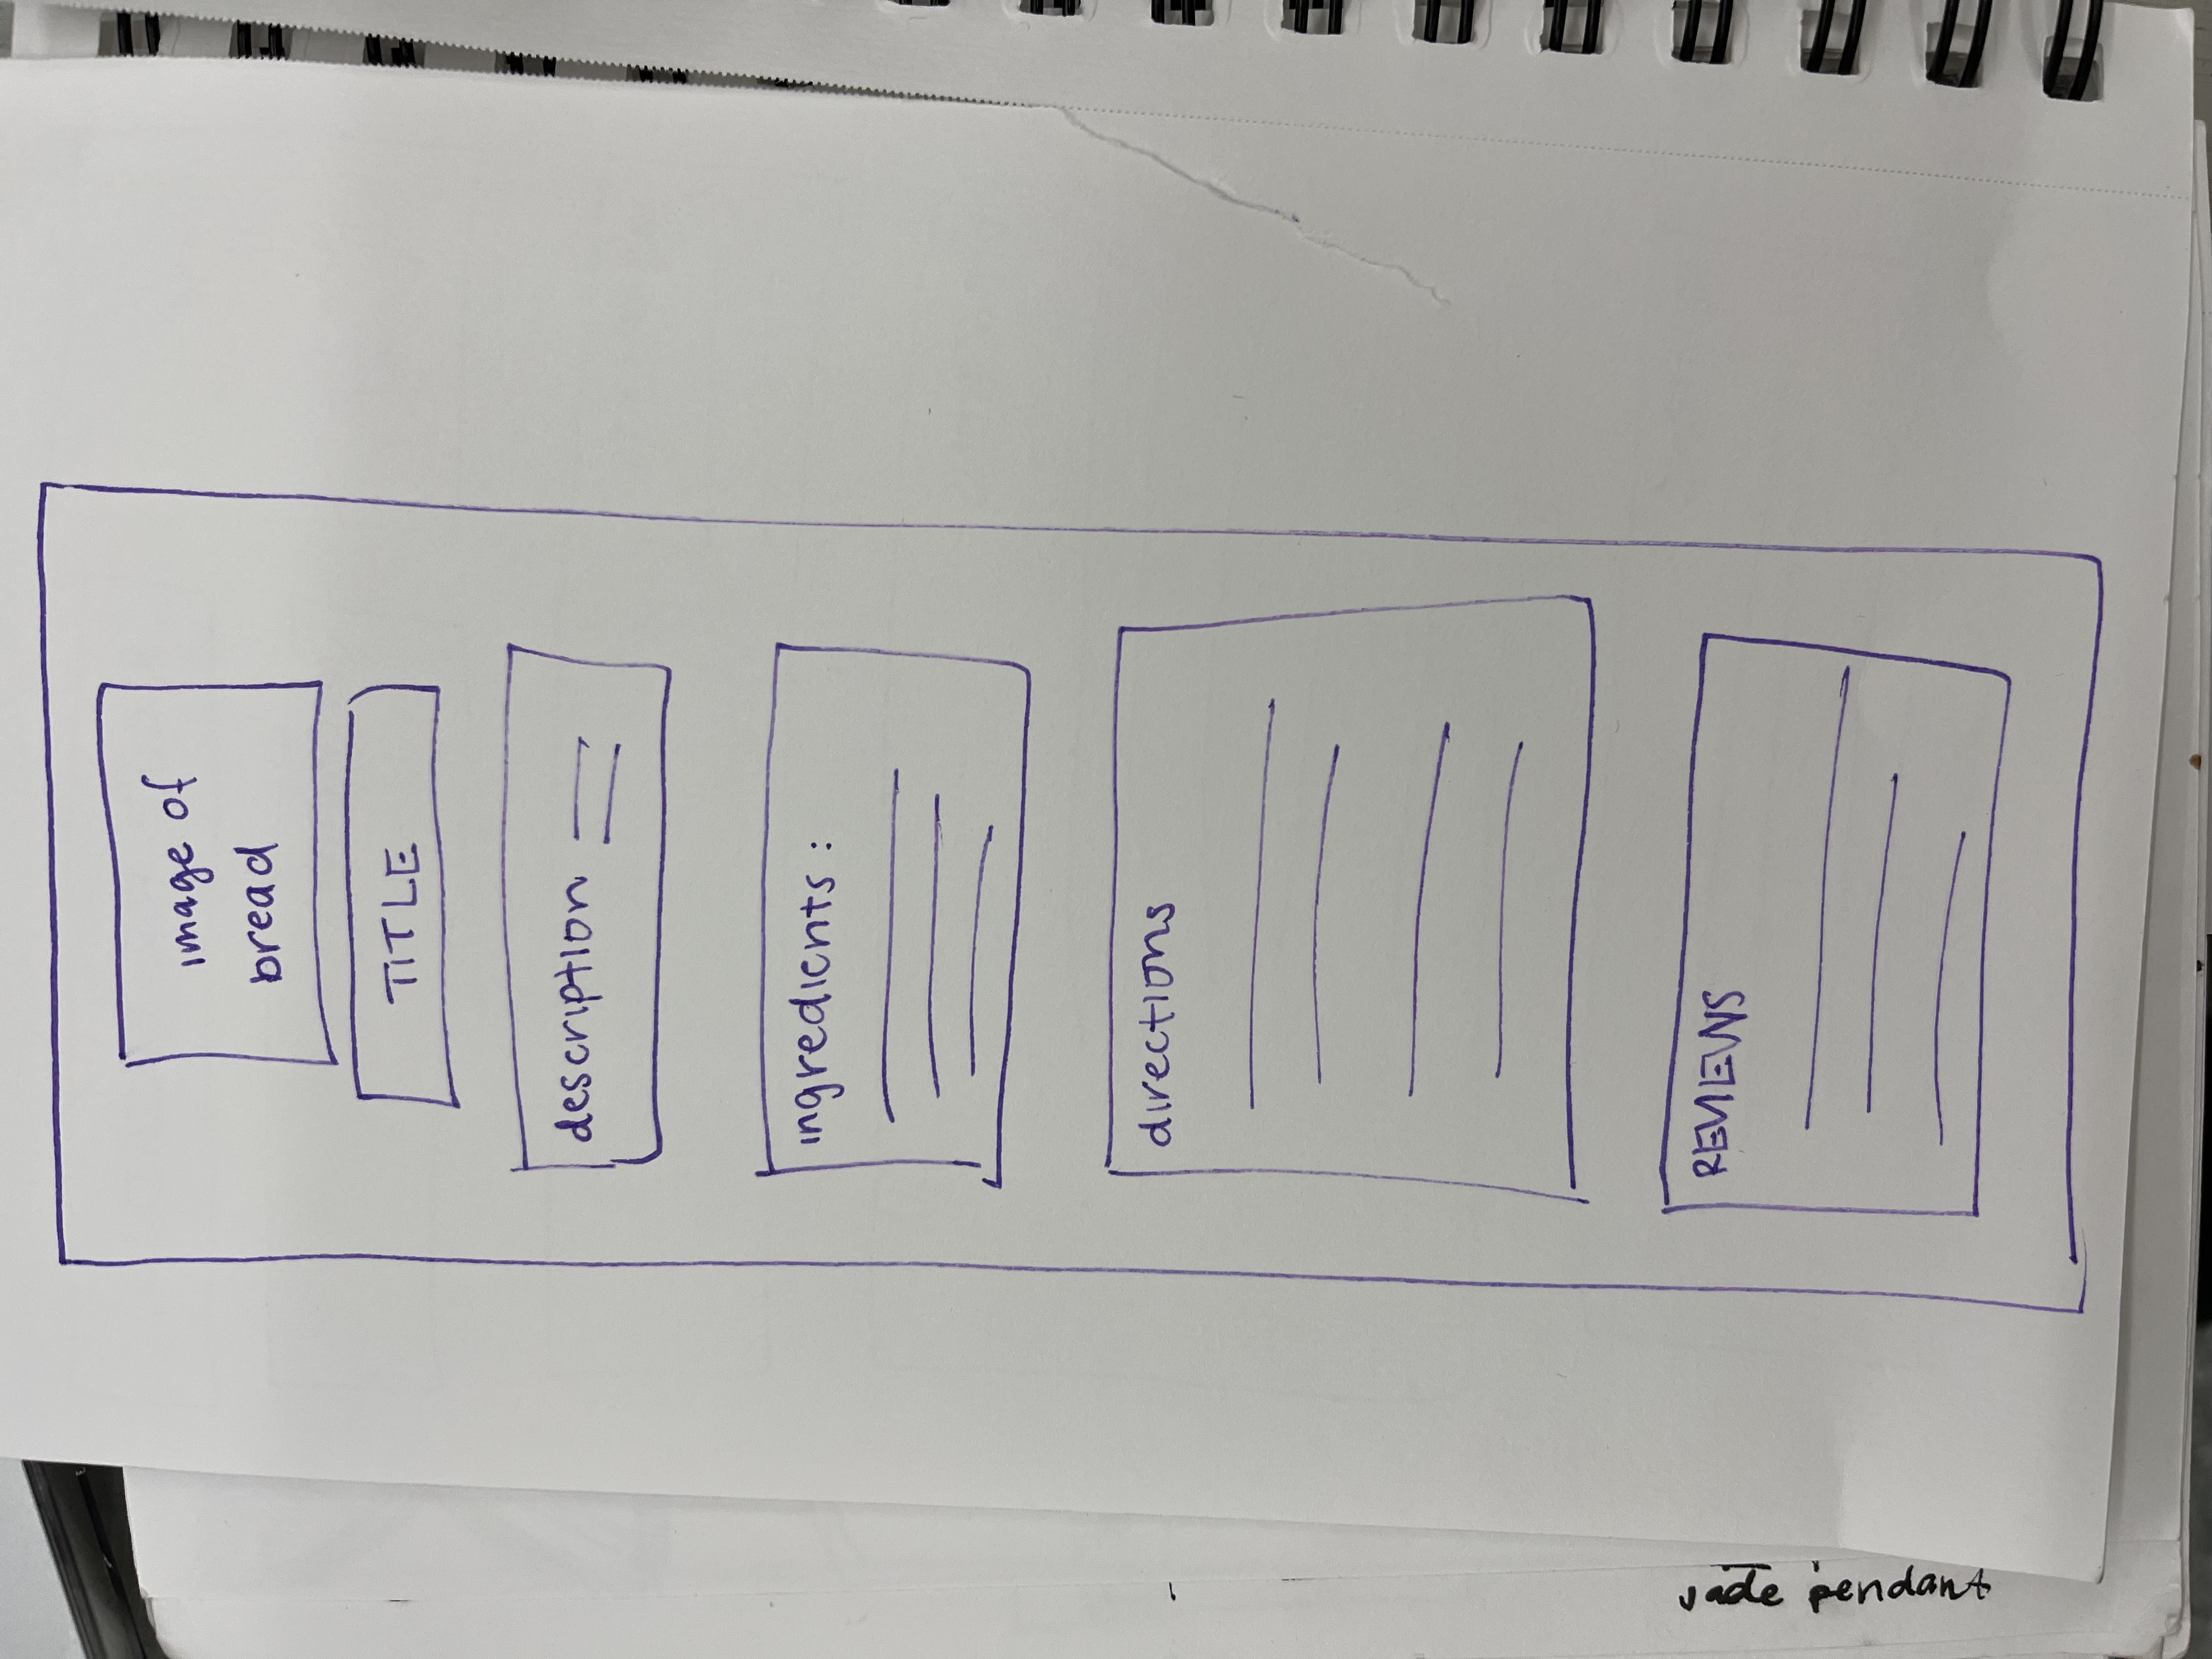 image of
bread
TITLE
description
ingredients :
directions
REVIEWS
jade pendant